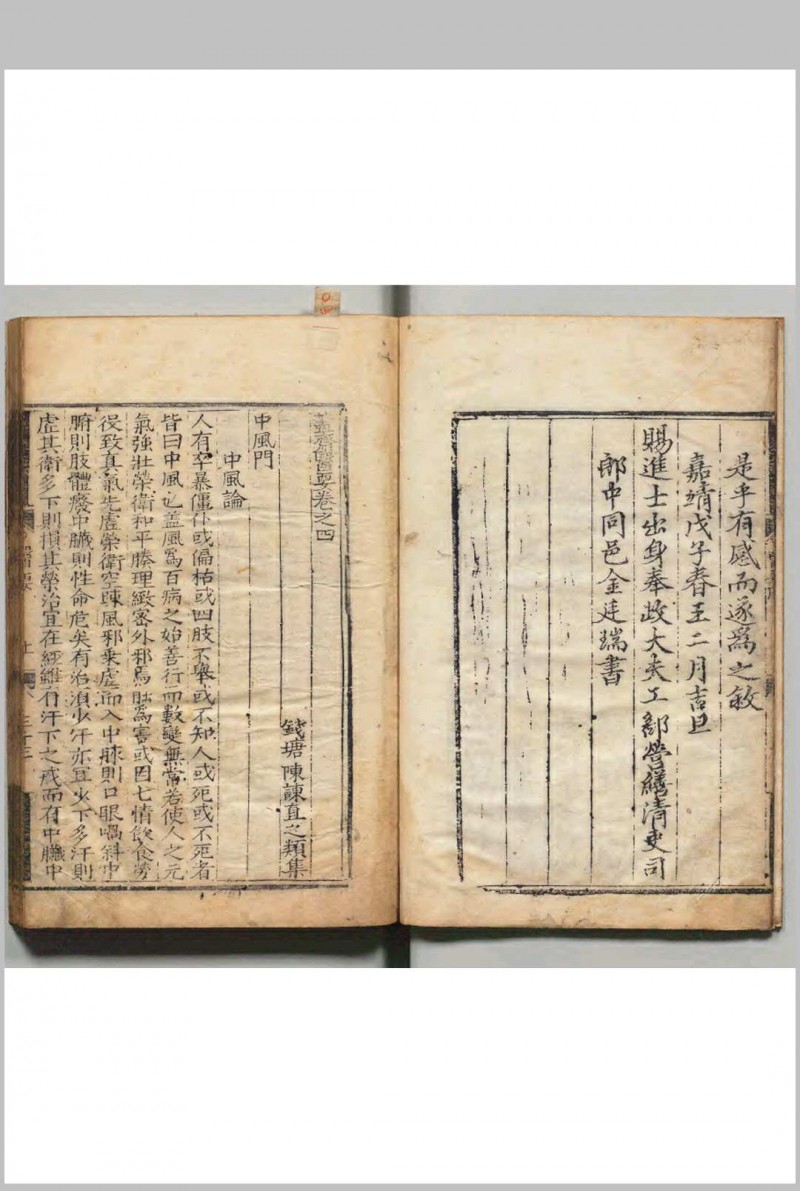 是乎有感而遂爲之敘
嘉靖戊子春王二月吉旦
賜進士出身奉政大夫工部營繕清吏司
郎中同邑金廷瑞書
蓋齋醫要卷之四
錢塘陳諫直之類集
中風門
中風論
人有卒暴僵仆或偏枯或四肢不舉或不知人或死或不死者
皆曰中風也盖風爲百病之始善行而數變無常若使人之元
氣強壯榮衛和平腠理緻密外邪焉能爲害或因七情飲食勞
役致真氣先虛榮衛空踈風邪乗虛而入中脉則口眼喎斜中
腑則肢體廢中臟則性命危矣有治湏少汗亦宜少下多汗則
虛其衛多下則損其榮治宜在經雖有汗下之戒而有中臟中
三十三